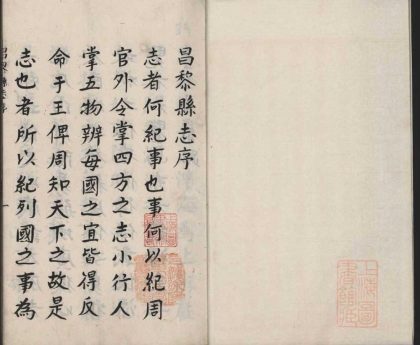 昌黎縣志序
志者何紀事也事何以紀周
官外令掌四方之志小行人
掌五物辨每國之宜皆得反
命于王俾周知天下之故是
志也者所以紀列國之事為
昌黎縣志序
一
上海圖
書館藏